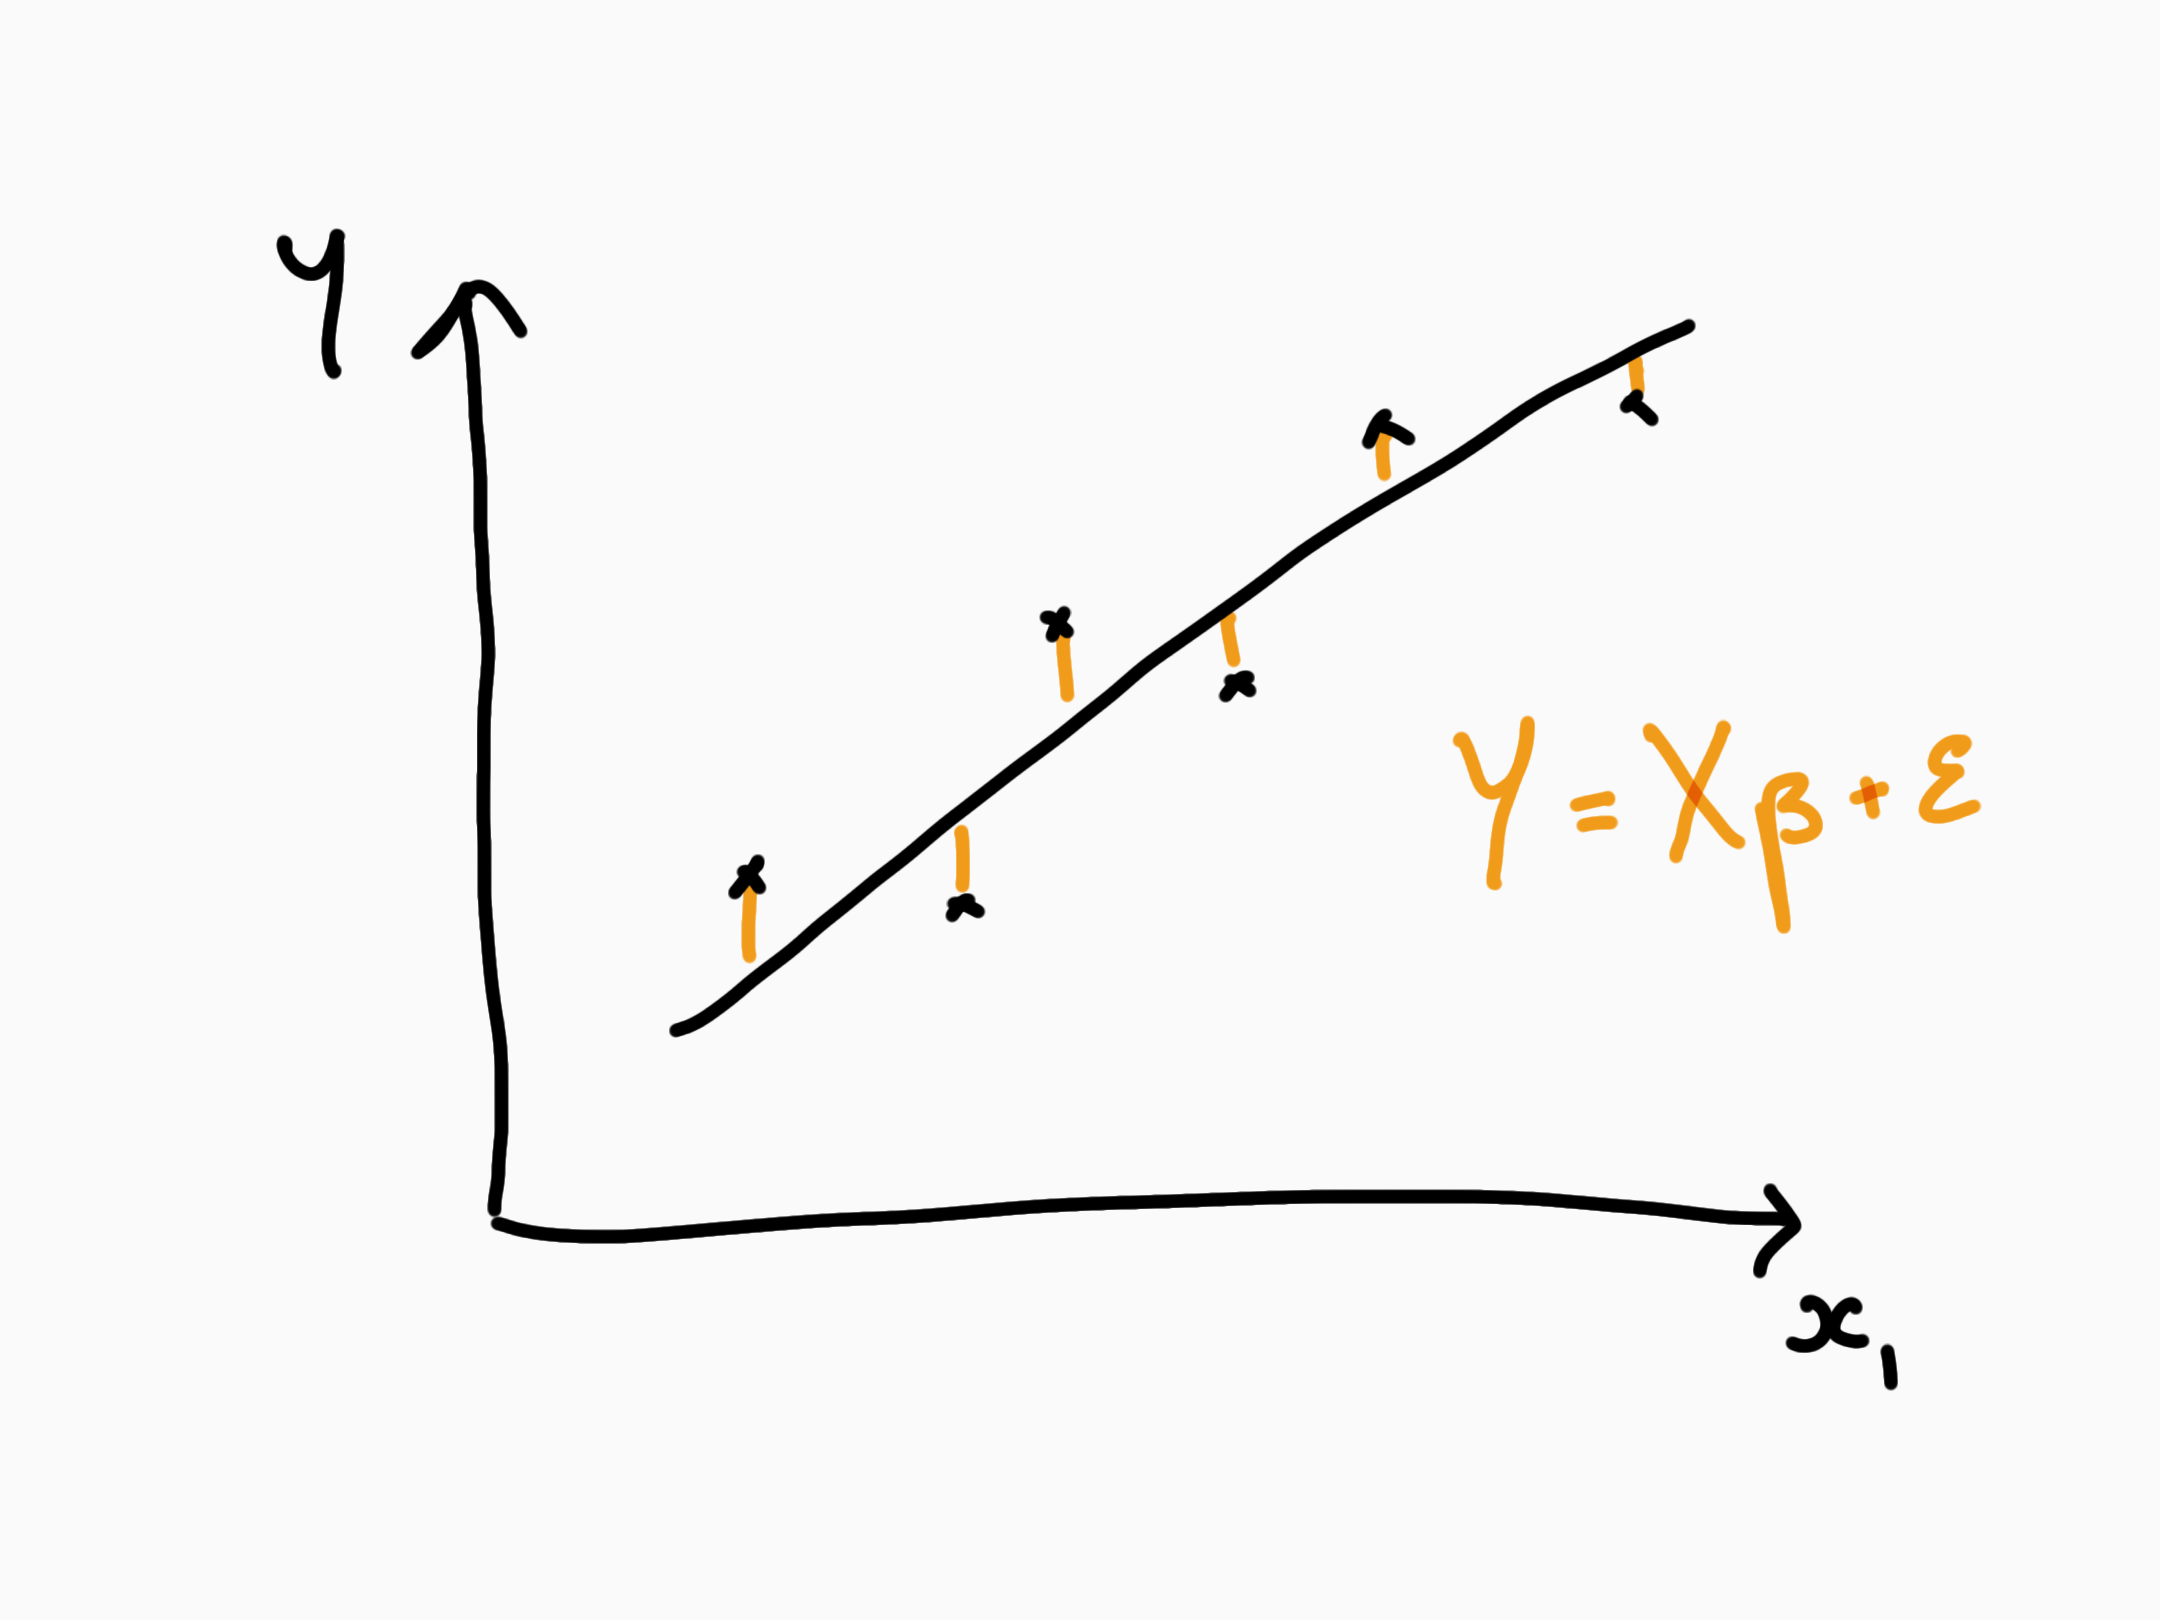 y
Y = Xβ + ε
x₁